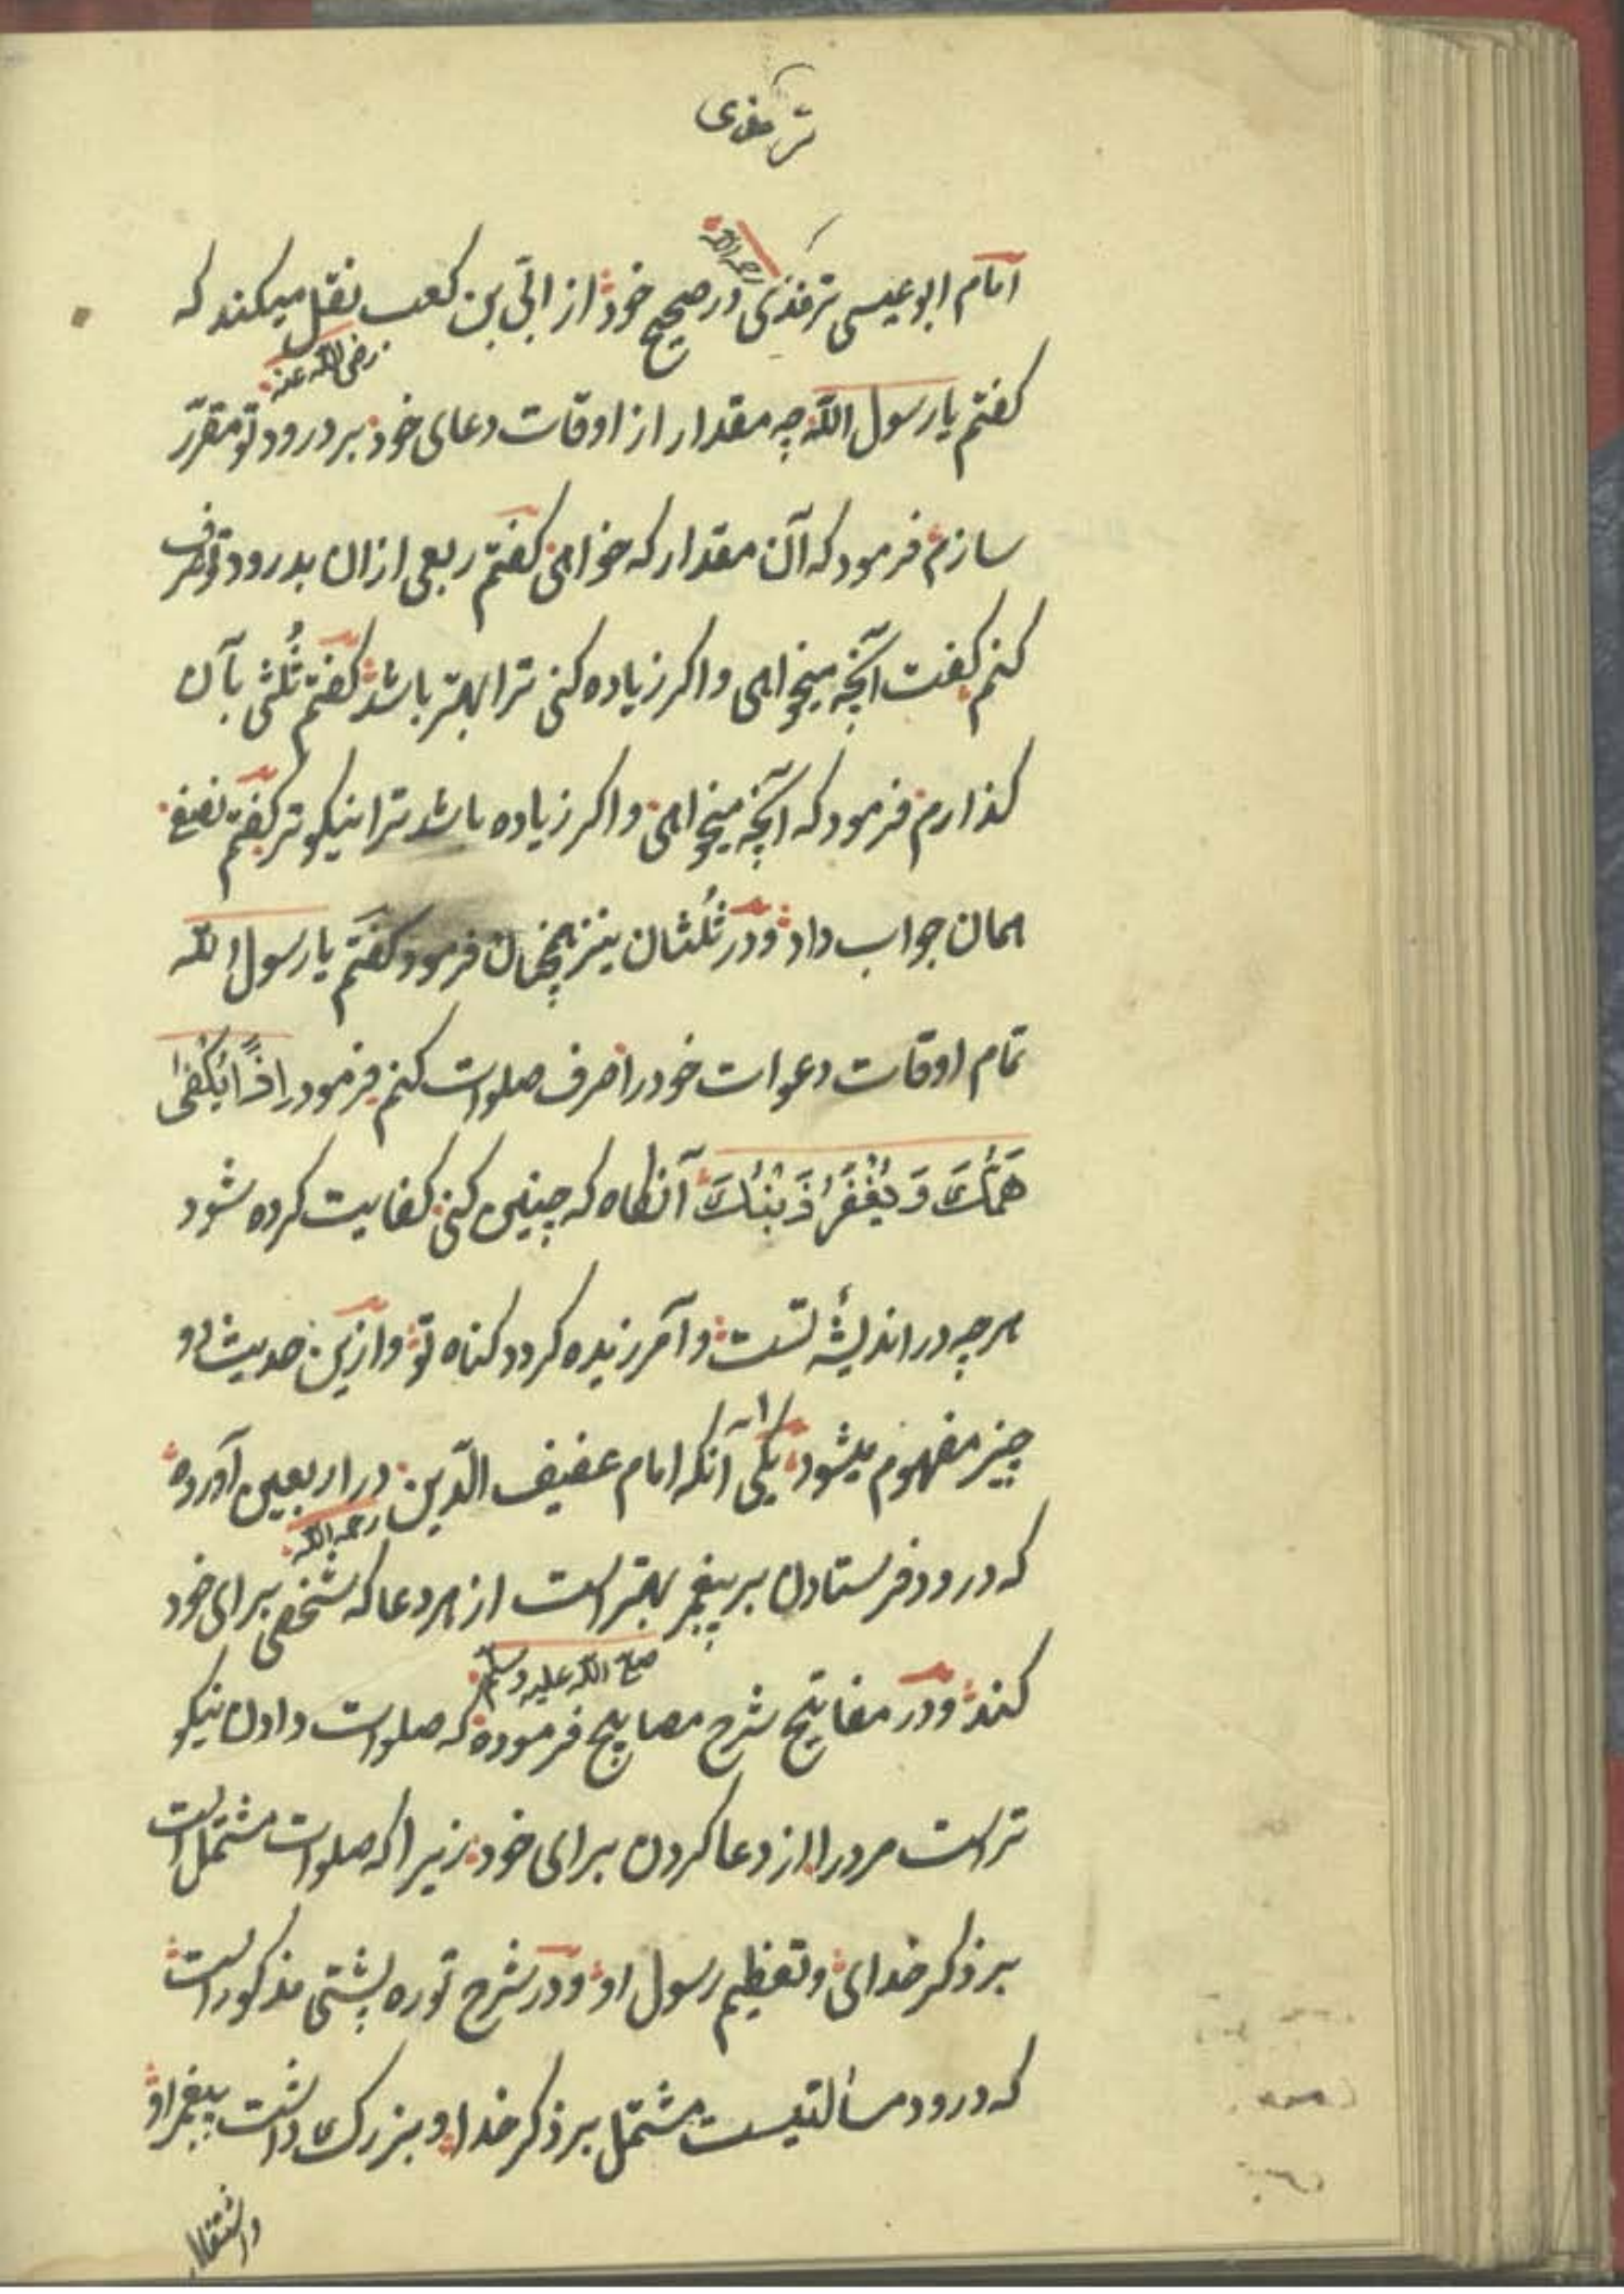 ترمذی
امام ابو عیسی ترمذی رحمه الله در صحیح خود از ابّی بن کعب نقل میکند که
رضی الله عنه
کفتم یا رسول الله چه مقدار از اوقات دعای خود بر درود تو مقرّر
سازم فرمود که آن مقدار که خواهی کفتم ربعی ازان بدرود تو صرف
کنم کفت آنچه میخواهی و اکر زیاده کنی ترا بهتر باشد کفتم ثُلثی بآن
کذارم فرمود که آنچه میخواهی و اکر زیاده باشد ترا نیکوتر کفتم نصف
همان جواب داد و در ثُلثان نیز همچنان فرمود کفتم یا رسول الله
تمام اوقات دعوات خود را صرف صلوات کنم فرمود اِذًا یُکْفٰی
هَمُّكَ وَ یُغْفَرُ ذَنْبُكَ آنکاه که چنین کنی کفایت کرده شود
هر چه در اندیشهٔ تست و آمرزیده کردد کناه تو و ازین حدیث دو
چیز مفهوم میشود یکی ۱ آنکه امام عفیف الدّین در اربعین آورده
رحمه الله
که درود فرستادن بر پیغمبر بهتر است از هر دعا که شخصی برای خود
صلی الله علیه وسلم
کند و در مفاتیح شرح مصابیح فرموده که صلوات دادن نیکو
تر است مرد را از دعا کردن برای خود زیرا که صلوات مشتمل است
بر ذکر خدای و تعظیم رسول او و در شرح توره پشتی مذکور است
که درود مسألتیست مشتمل بر ذکر خدا و بزرک داشت پیغمبر او
واشتغال